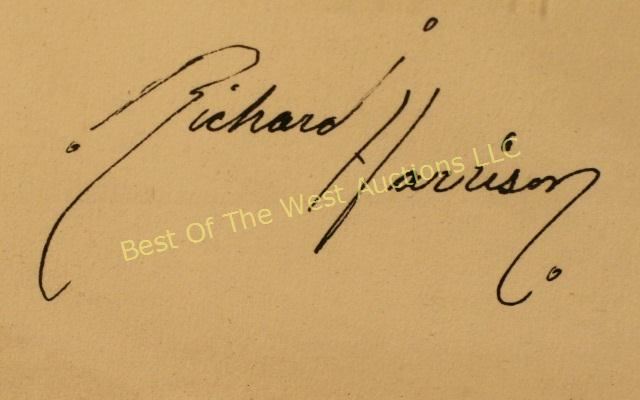 Richard Harrison
Best Of The West Auctions LLC